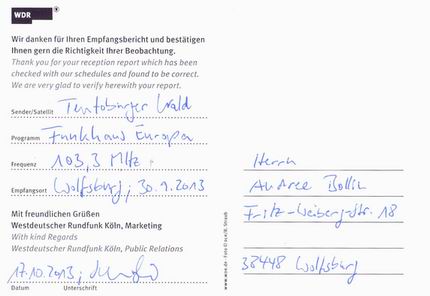 WDR
Wir danken für Ihren Empfangsbericht und bestätigen
Ihnen gern die Richtigkeit Ihrer Beobachtung.
Thank you for your reception report which has been
checked with our schedules and found to be correct.
We are very glad to verify herewith your report.
Sender/Satellit Teutoburger Wald
Programm Funkhaus Europa
Frequenz 103,3 MHz
Empfangsort Wolfsburg; 30.9.2013
Mit freundlichen Grüßen
Westdeutscher Rundfunk Köln, Marketing
With kind Regards
Westdeutscher Rundfunk Köln, Public Relations
17.10.2013;
Datum Unterschrift
Herrn
Andree Bollin
Fritz-Weiberg-Str. 18
38448 Wolfsburg